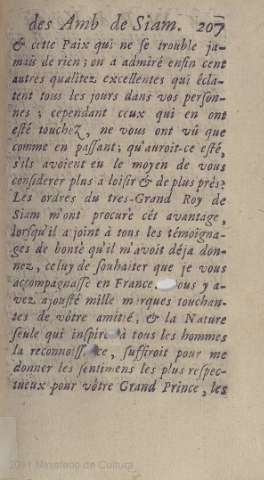 des Amb de Siam. 207
& cette Paix qui ne se trouble ja-
mais de rien; on a admiré enfin cent
autres qualitez excellentes qui écla-
tent tous les jours dans vos person-
nes ; cependant ceux qui en ont
esté touchez, ne vous ont vû que
comme en passant; qu'auroit-ce esté,
s'ils avoient eu le moyen de vous
considerer plus à loisir & de plus prés?
Les ordres du tres-Grand Roy de
Siam m'ont procuré cét avantage,
lorsqu'il a joint à tous les témoigna-
ges de bonté qu'il m'avoit déja don-
nez, celuy de souhaiter que je vous
accompagnasse en France. ous y a-
vez ajousté mille m rques touchan-
tes de vôtre amitié, & la Nature
seule qui inspire à tous les hommes
la reconnoiss ce, suffiroit pour me
donner les sentimens les plus respec-
tueux pour vôtre Grand Prince, les
2021 Ministerio de Cultura